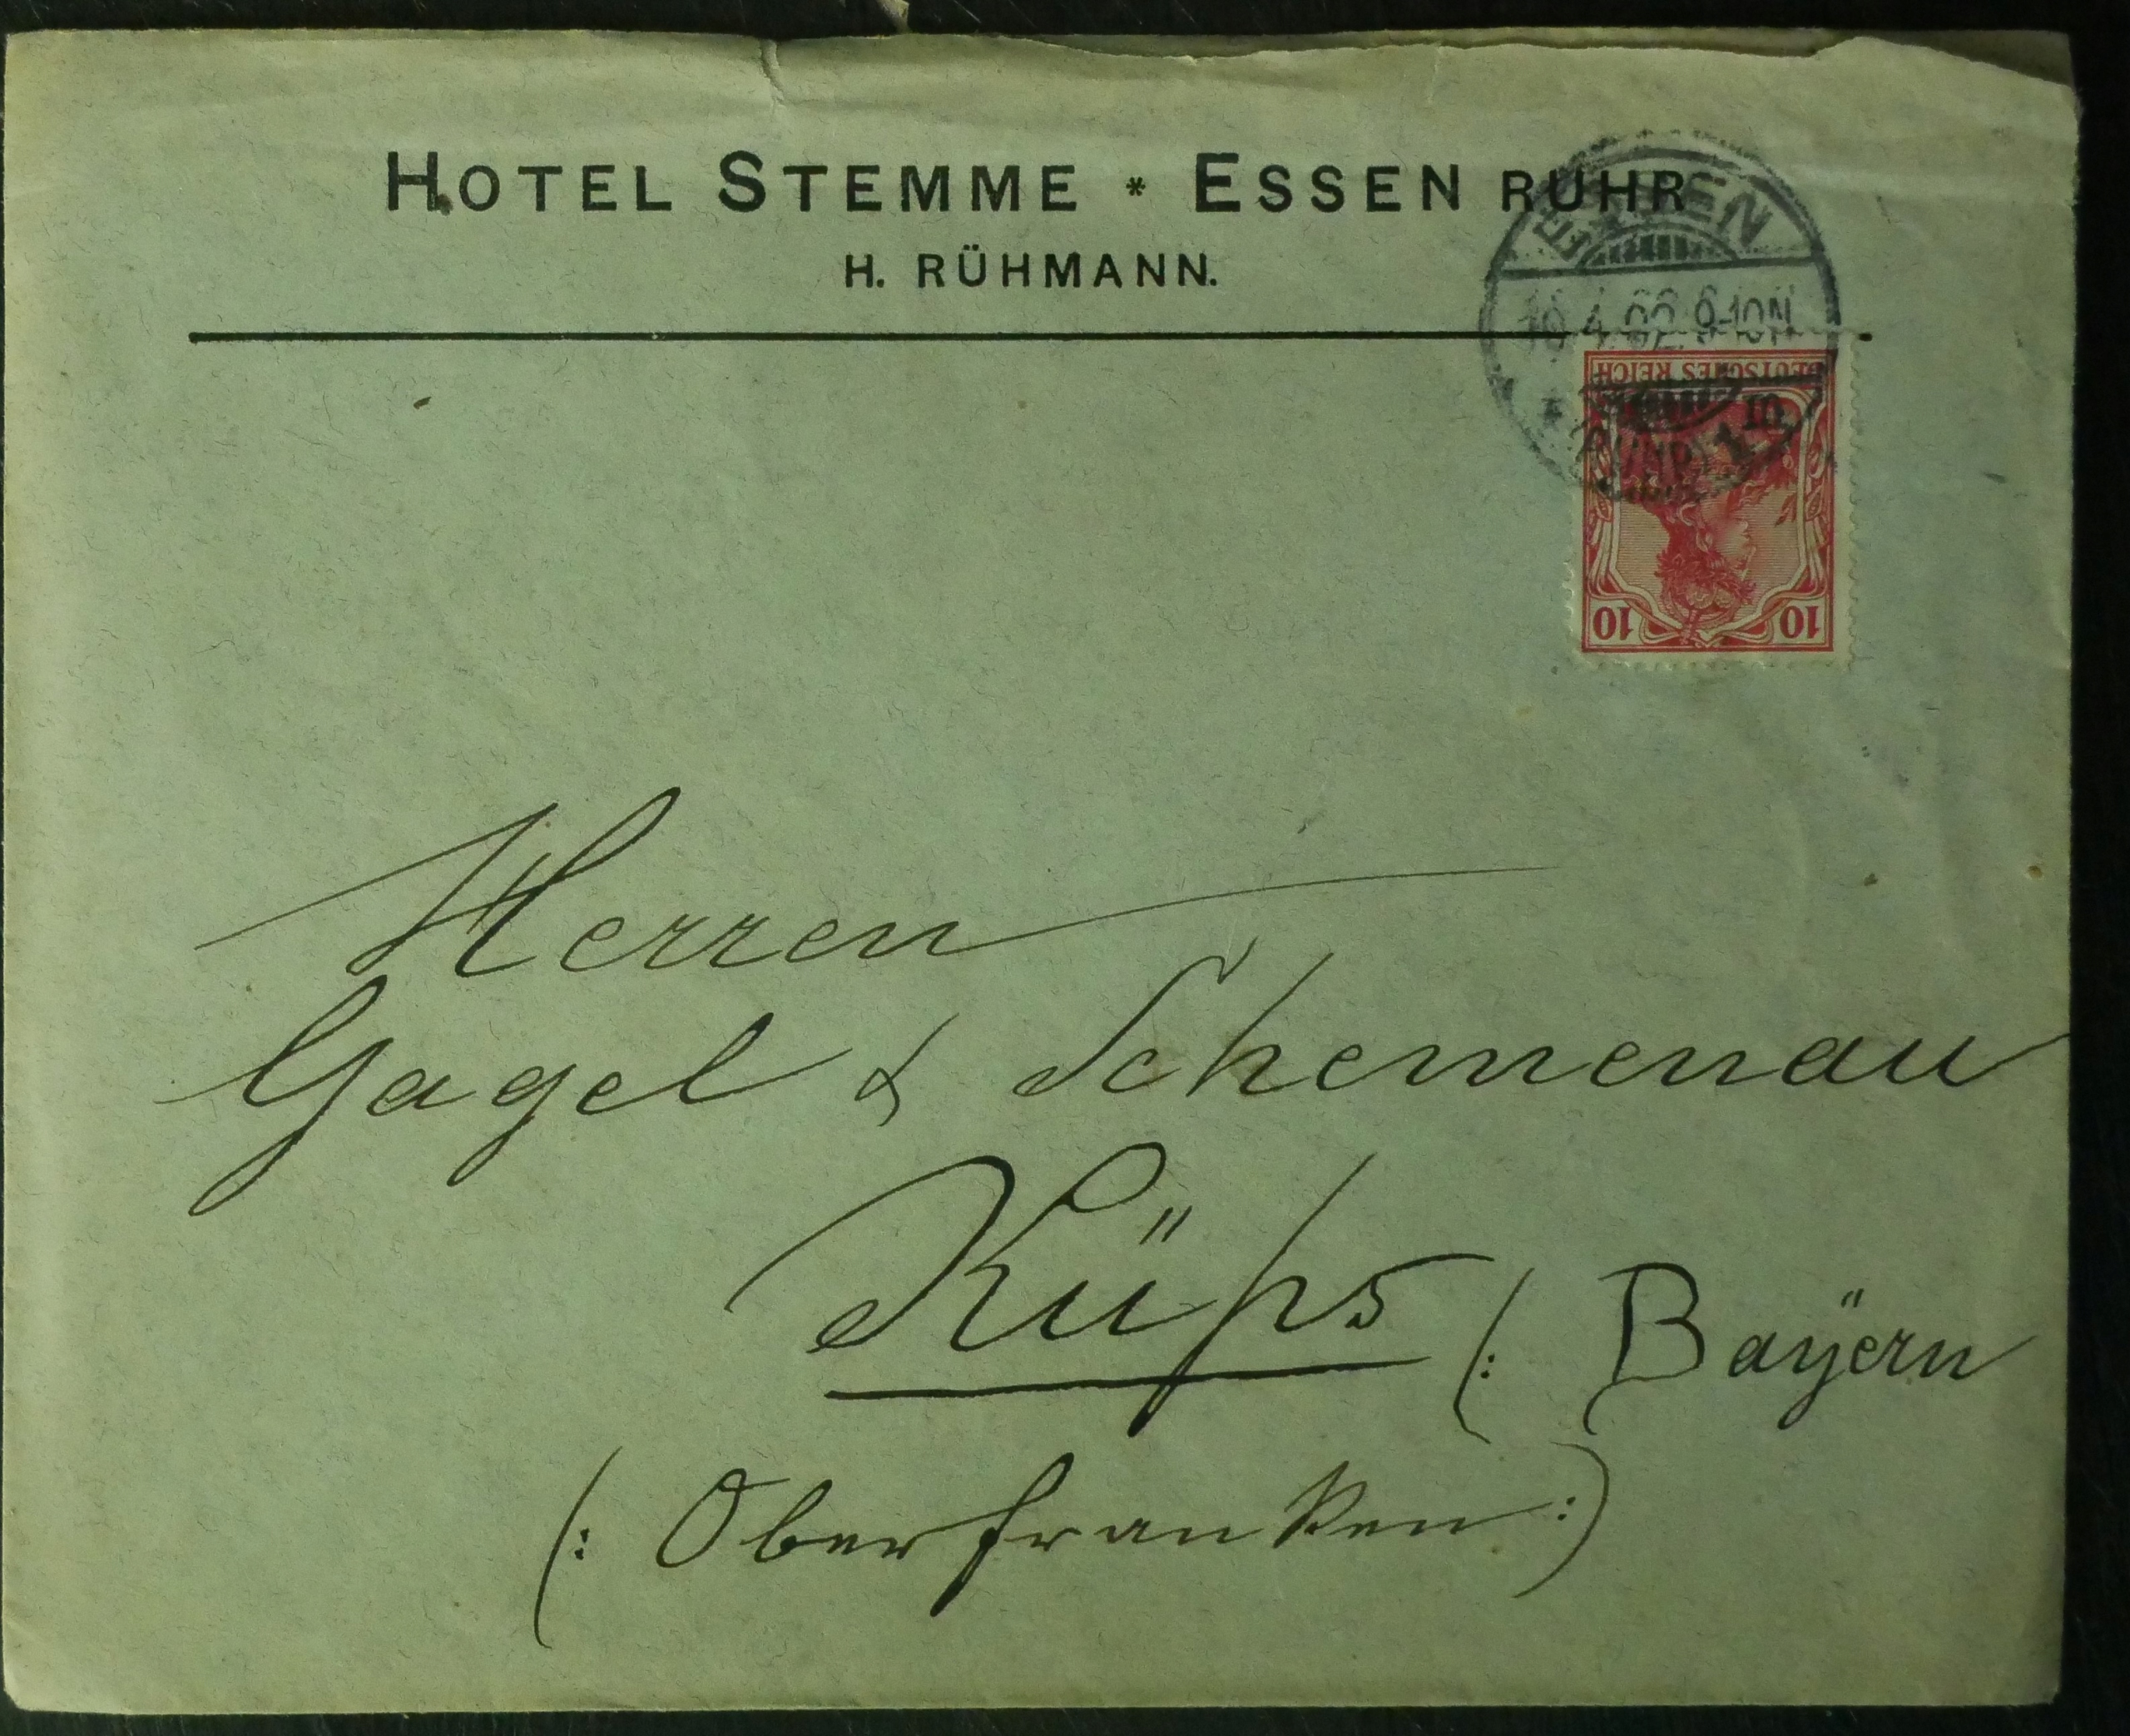 HOTEL STEMME * ESSEN RUHR
H. RÜHMANN.
ESSEN
9-10N
DEUTSCHES REICH
10 10
Herren
Gagel & Schemenau
Küps (: Bayern
(: Oberfranken :)